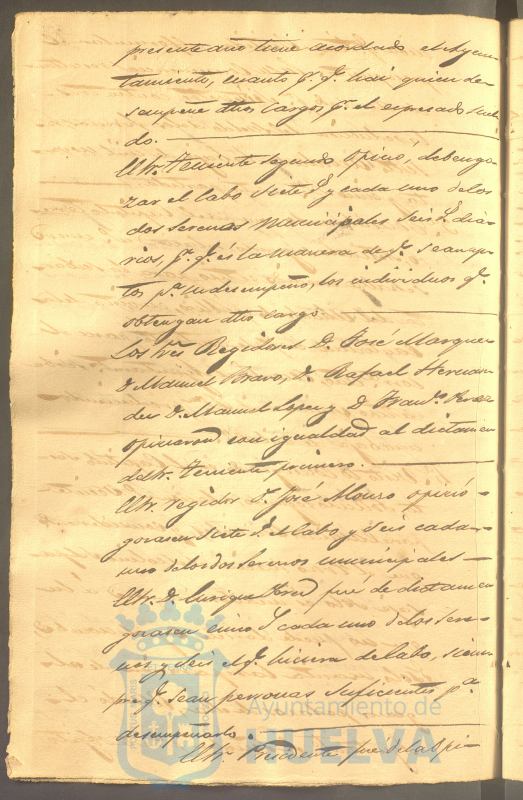 presente año tiene acordado el Ayun
tamiento, cuanto p.r q.e hai quien de
sempeñe dhos cargos p.r el espresado suel
do.
El Sr. Teniente segundo opinó, deben go
zar el Cabo siete r.s y cada uno de los
dos serenos municipales seis r.s dia
rios, p.r q.e és la manera de q.e sean ap
tos p.a su desempeño, los individuos q.e
obtengan dho cargo
Los Sres Regidores D. José Marquez
D. Manuel Bravo, D. Rafael Hernan
dez D. Manuel Lopez y D. Fran.co Perez
opinaron con igualdad al dictamen
del Sr. Teniente primero.
El Sr. regidor D. José Alonso opinó
gozasen siete r.s el Cabo y seis cada
uno de los dos Serenos municipales
El Sr. D. Enrique fué de dictamen
gozasen cinco r.s cada uno de los Sere
nos y seis el q.e hiciera de Cabo, siem
pre q.e sean personas suficientes p.a
desempeñarlo.
El Sr. Presidente fué de la opi
Ayuntamiento de
HUELVA